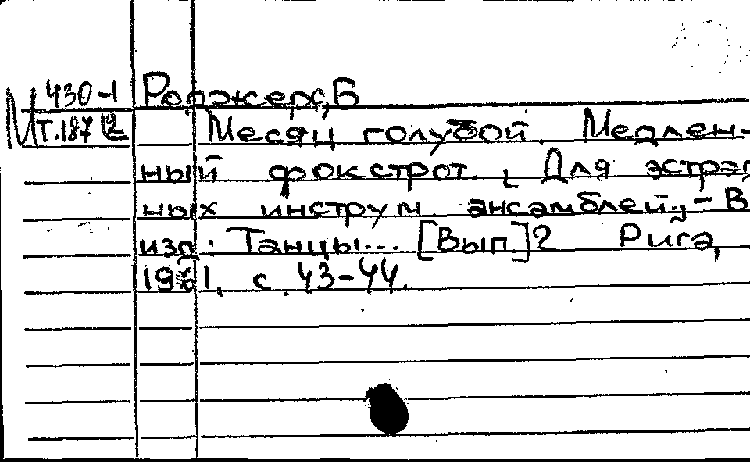 М 430-1 Роджерс, Б
Т.187 Месяц голубой. Медлен-
ный фокстрот. [Для эстрад
ных инструм ансамблей]. - В
изд: Танцы... [Вып] 2 Рига,
1961, с. 43-44.